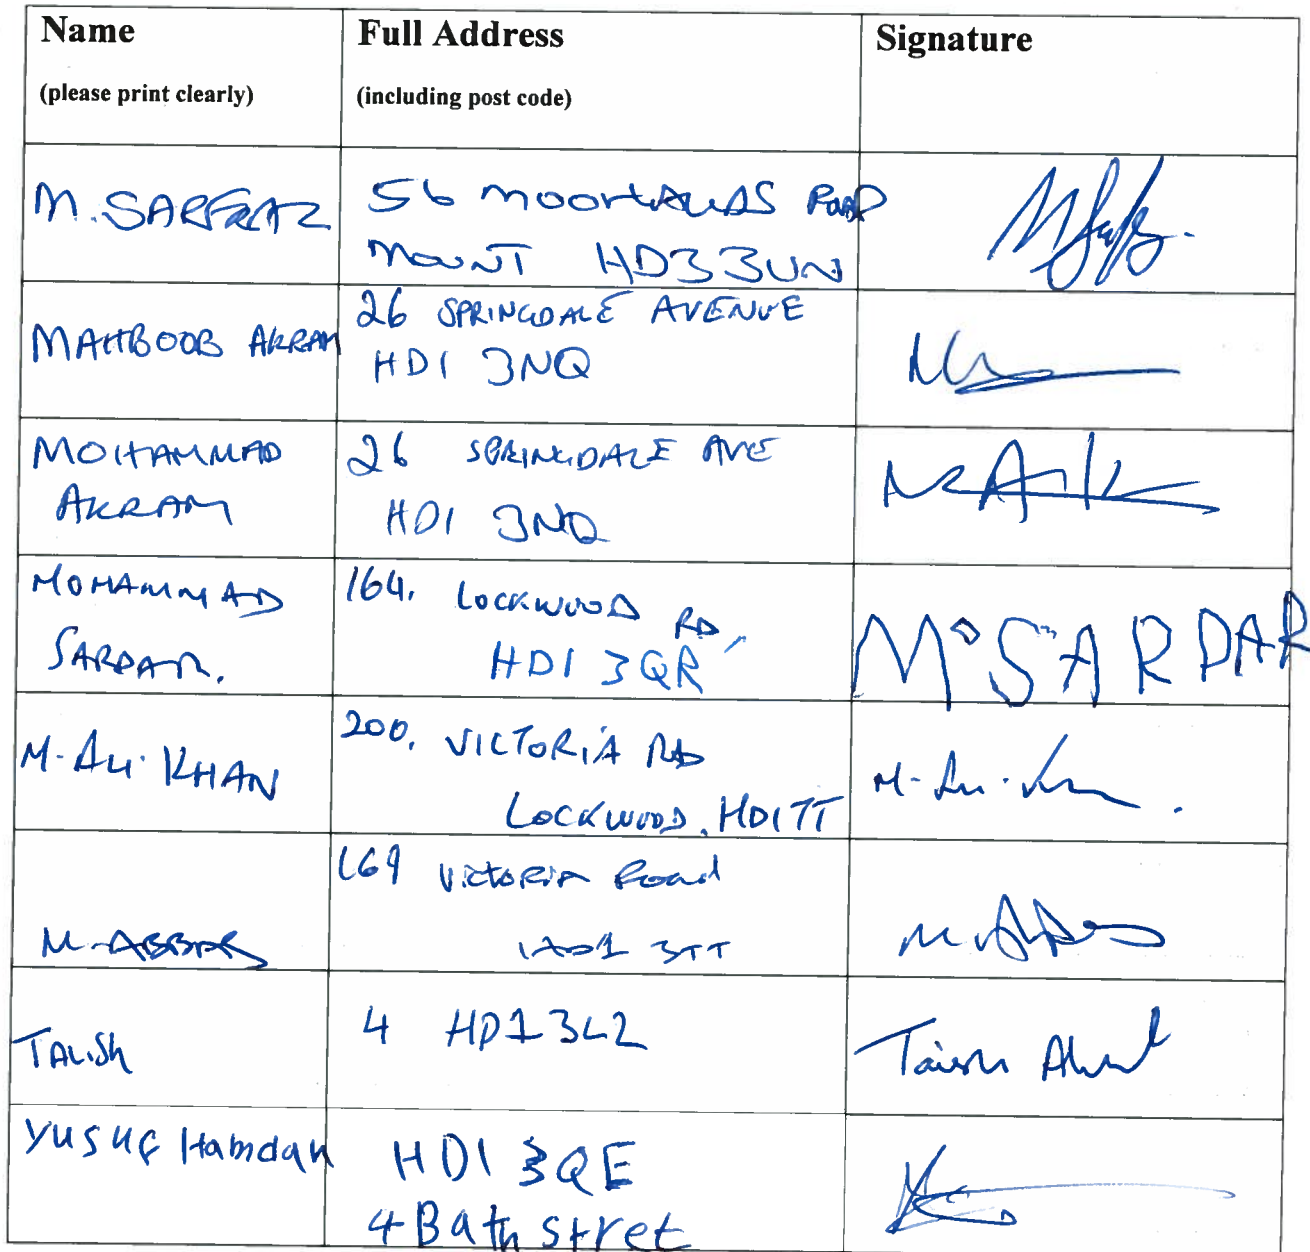 Name
Full Address
Signature
(please print clearly)
(including post code)
M. SARFRAZ
56 MOORLANDS ROAD
MOUNT HD3 3UN
MAHBOOB AKRAM
26 SPRINGDALE AVENUE
HD1 3NQ
MOHAMMAD
AKRAM
26 SPRINGDALE AVE
HD1 3NQ
MOHAMMAD
SARDAR.
164. LOCKWOOD RD,
HD1 3QR
M. SARDAR
M. ALI. KHAN
200. VICTORIA RD
LOCKWOOD, HD1 TT
M. Ali.
M. ABBAS
169 VICTORIA Road
HD1 3TT
TALISH
4 HD1 3LZ
YUSUF Hamdan
HD1 3QE
4 Bath Stret